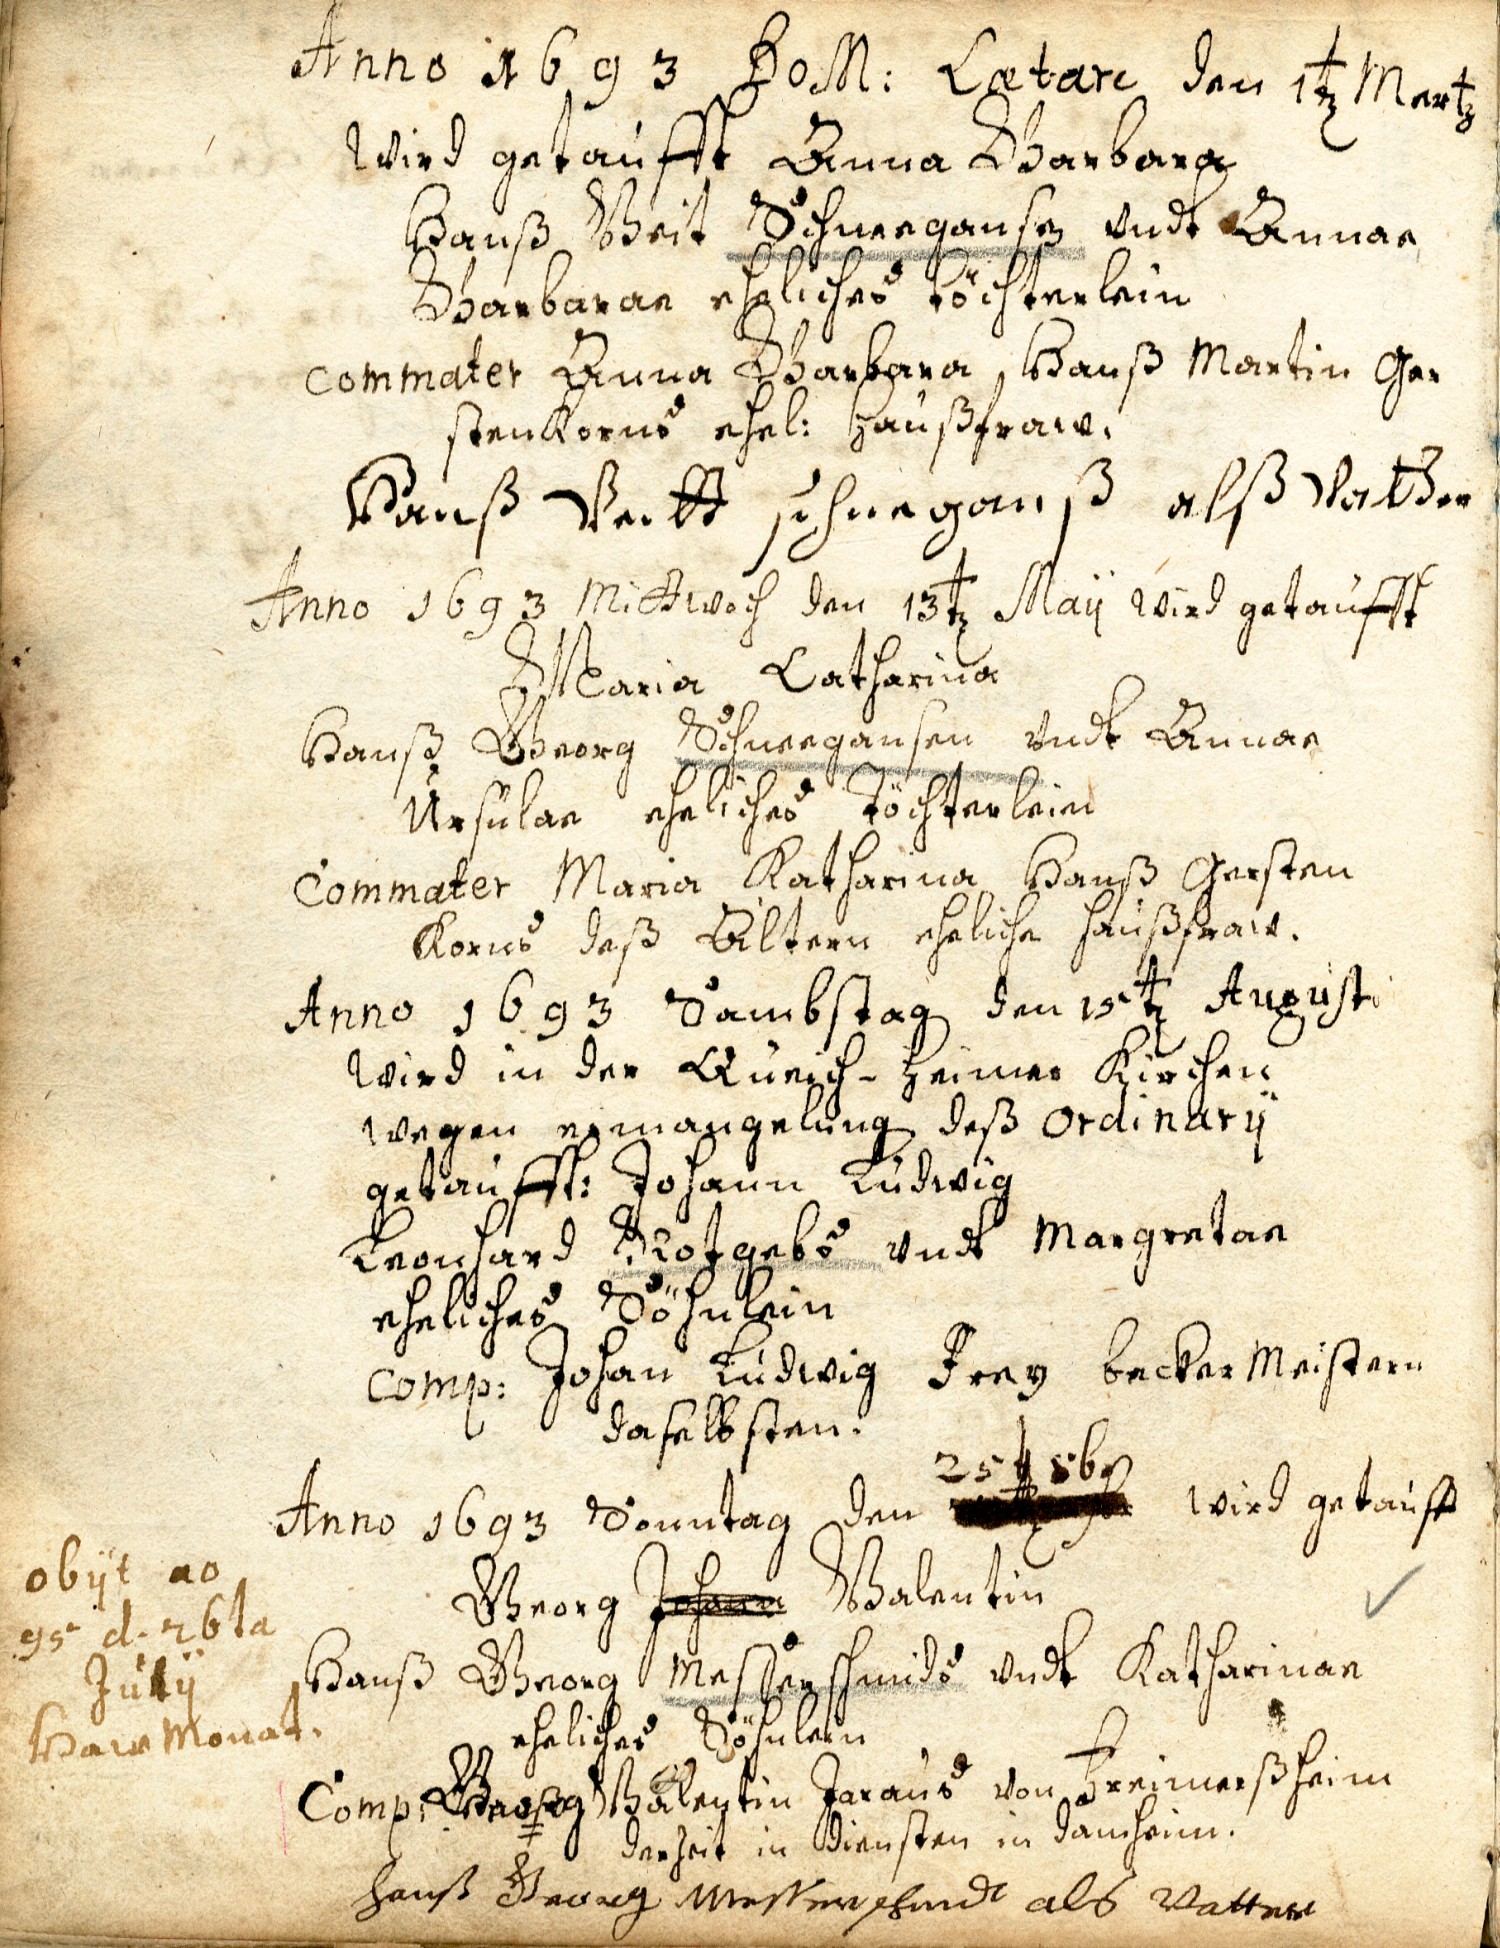 Anno 1693 DoM: Lætare den 1t Mertz
wird getaufft Anna Barbara
Hanß Veit Schneegansen vndt Annae
Barbarae eheliches töchterlein
Commater Anna Barbara, Hanß Martin Ger
stenkorns ehel: haußfraw.
Hanß Veitt schneganß alß Vatter
Anno 1693 Mittwoch den 13t Maij wird getaufft
Maria Catharina
Hanß Georg Schneegansen vndt Annae
Ursulae eheliches töchterlein
Commater Maria Katharina Hanß Gersten
Korns deß Eltern eheliche haußfraw.
Anno 1693 Sambstag den 15t Augusti
wird in der Queich-heimer Kirchen
wegen ermangelung deß Ordinarij
getaufft: Johann Ludwig
Leonhard Rotgebs vndt Margretae
eheliches Söhnlein
Comp: Johan Ludwig Frey becker Meistern
daselbsten.
25t 8br
Anno 1693 Sonntag den wird getaufft
Georg Johann Valentin
Hanß Georg Messerschmids vndt Katharinae
eheliches Söhnlein
Comp: Georg Valentin Jaraus von Freimerßheim
derzeit in diensten in Damheim.
hanß Georg Messerschmidt als Vatter
obijt ao
95 d. 26ta
Julij
Haw Monat.